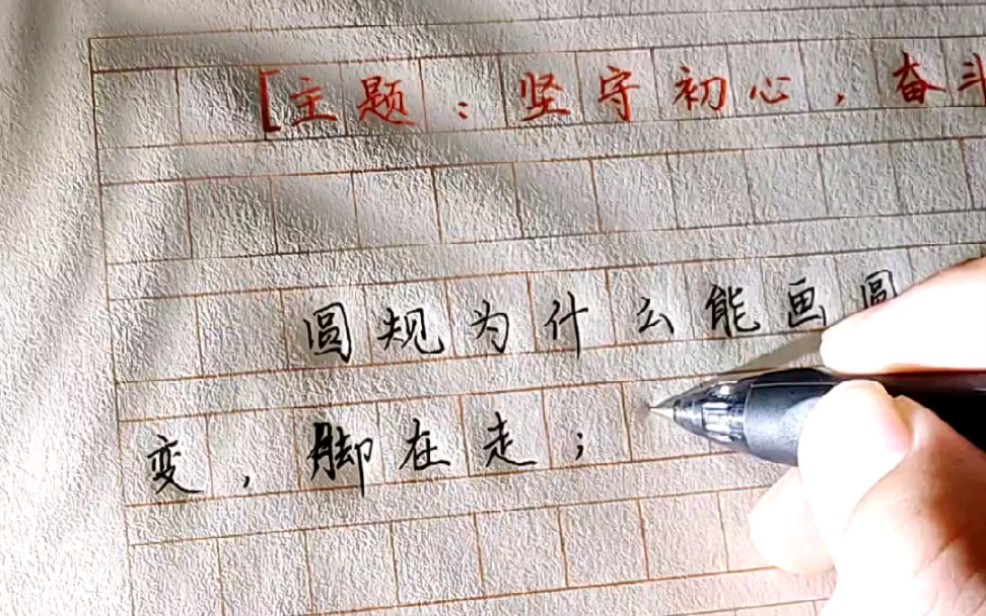 [主题：坚守初心，奋斗
圆规为什么能画圆
变，脚在走；